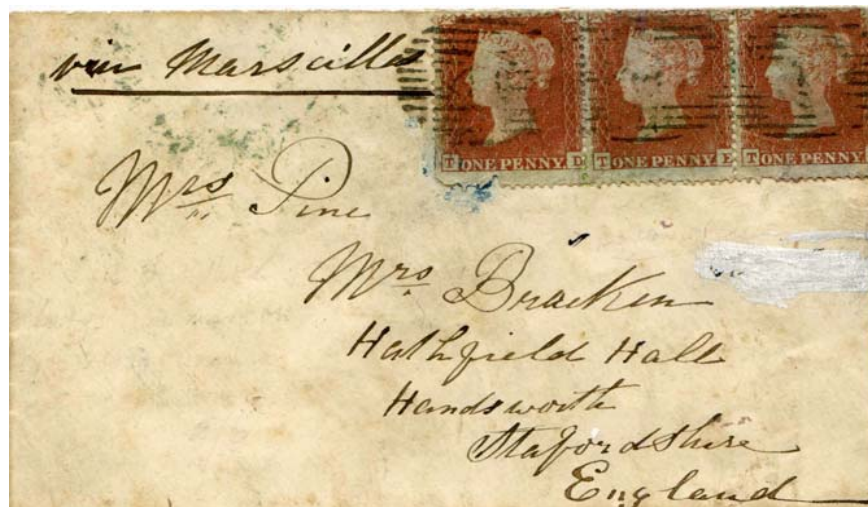 via Marseilles
T ONE PENNY D T ONE PENNY E T ONE PENNY
Mrs Pine
Mrs Bracken
Hathfield Hall
Handsworth
Stafordshire
England